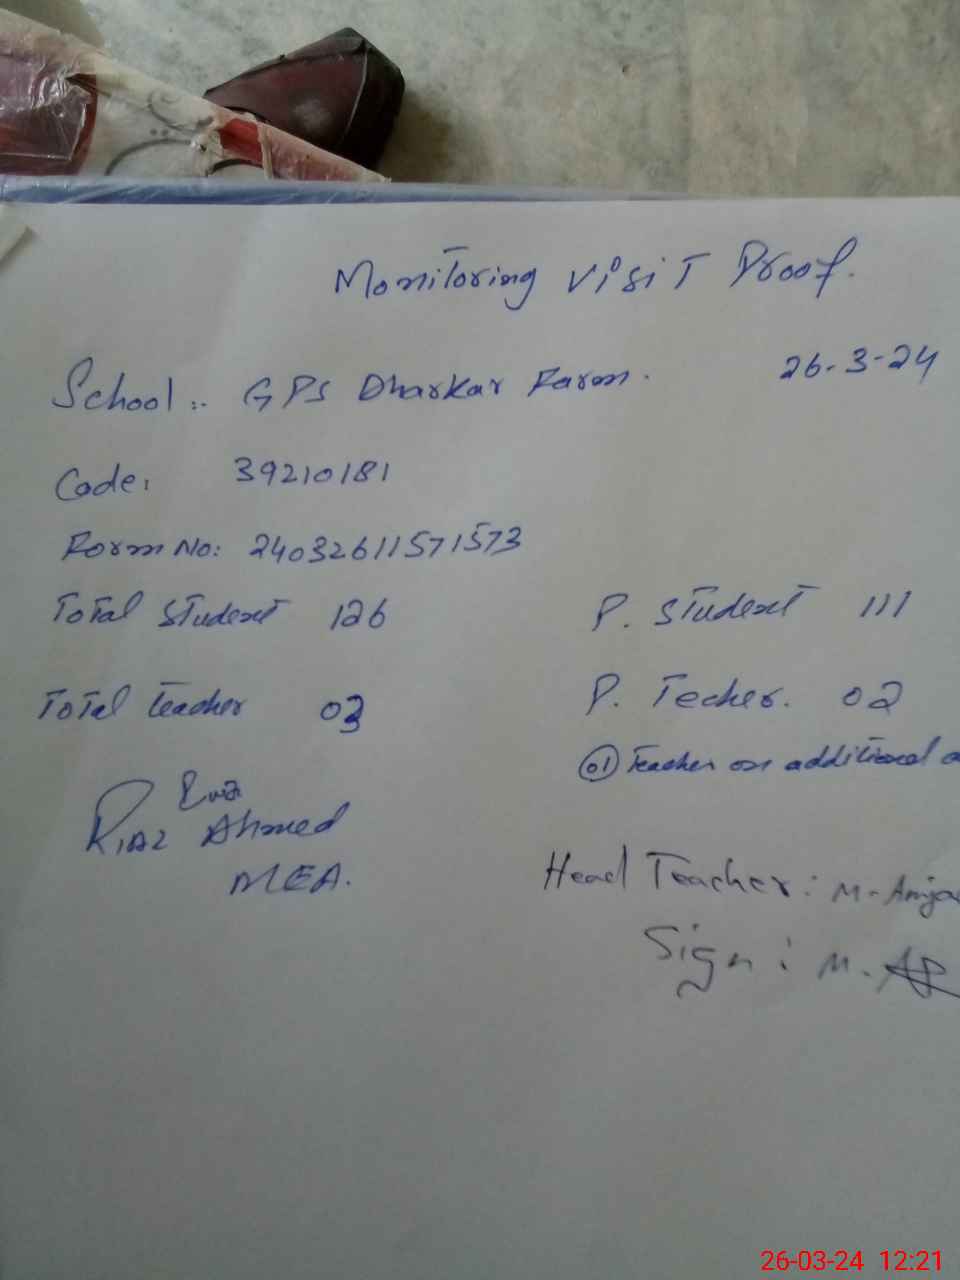 Monitoring Visit Proof.
26-3-24
School:- GPS Dharkar Farm.
Code: 39210181
Form No: 24032611571573
Total Student 126 P. Student 111
Total teacher 03 P. Techer. 02
01 Teacher on additional
Riaz Ahmed
MEA.
Head Teacher: M. Amja
Sign: M.
26-03-24 12:21